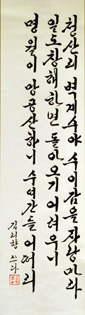 청산리 벽계수야 수이감을 자랑마라
일도창해 하면 돌아오기 어려우니
명월이 만공산하니 수여간들 어떠리
쓰다